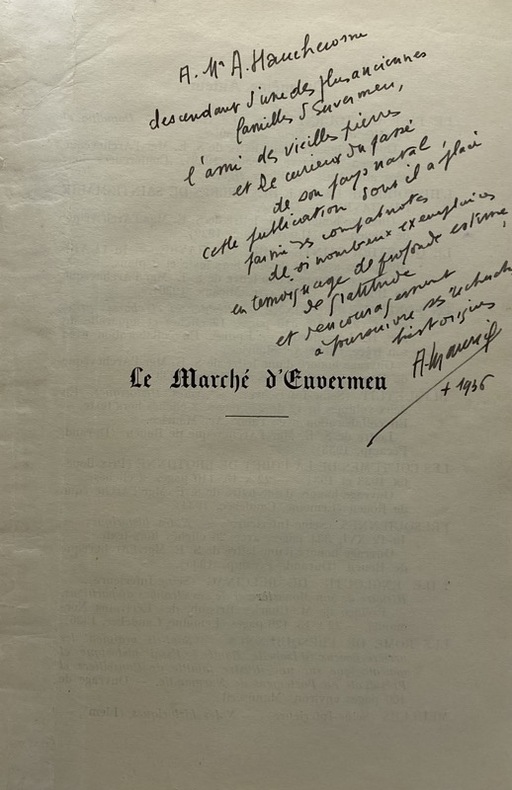 A. Mr A. Hauchecorne
descendant d'une des plus anciennes
familles d'Envermeu,
l'ami des vieilles pierres
et le curieux du passé
de son pays natal,
cette publication dont il a placé
parmi ses compatriotes
de si nombreux exemplaires
en témoignage de profonde estime,
de gratitude
et d'encouragement
à poursuivre ses recherches
historiques
+ 1956
Le Marché d'Envermeu